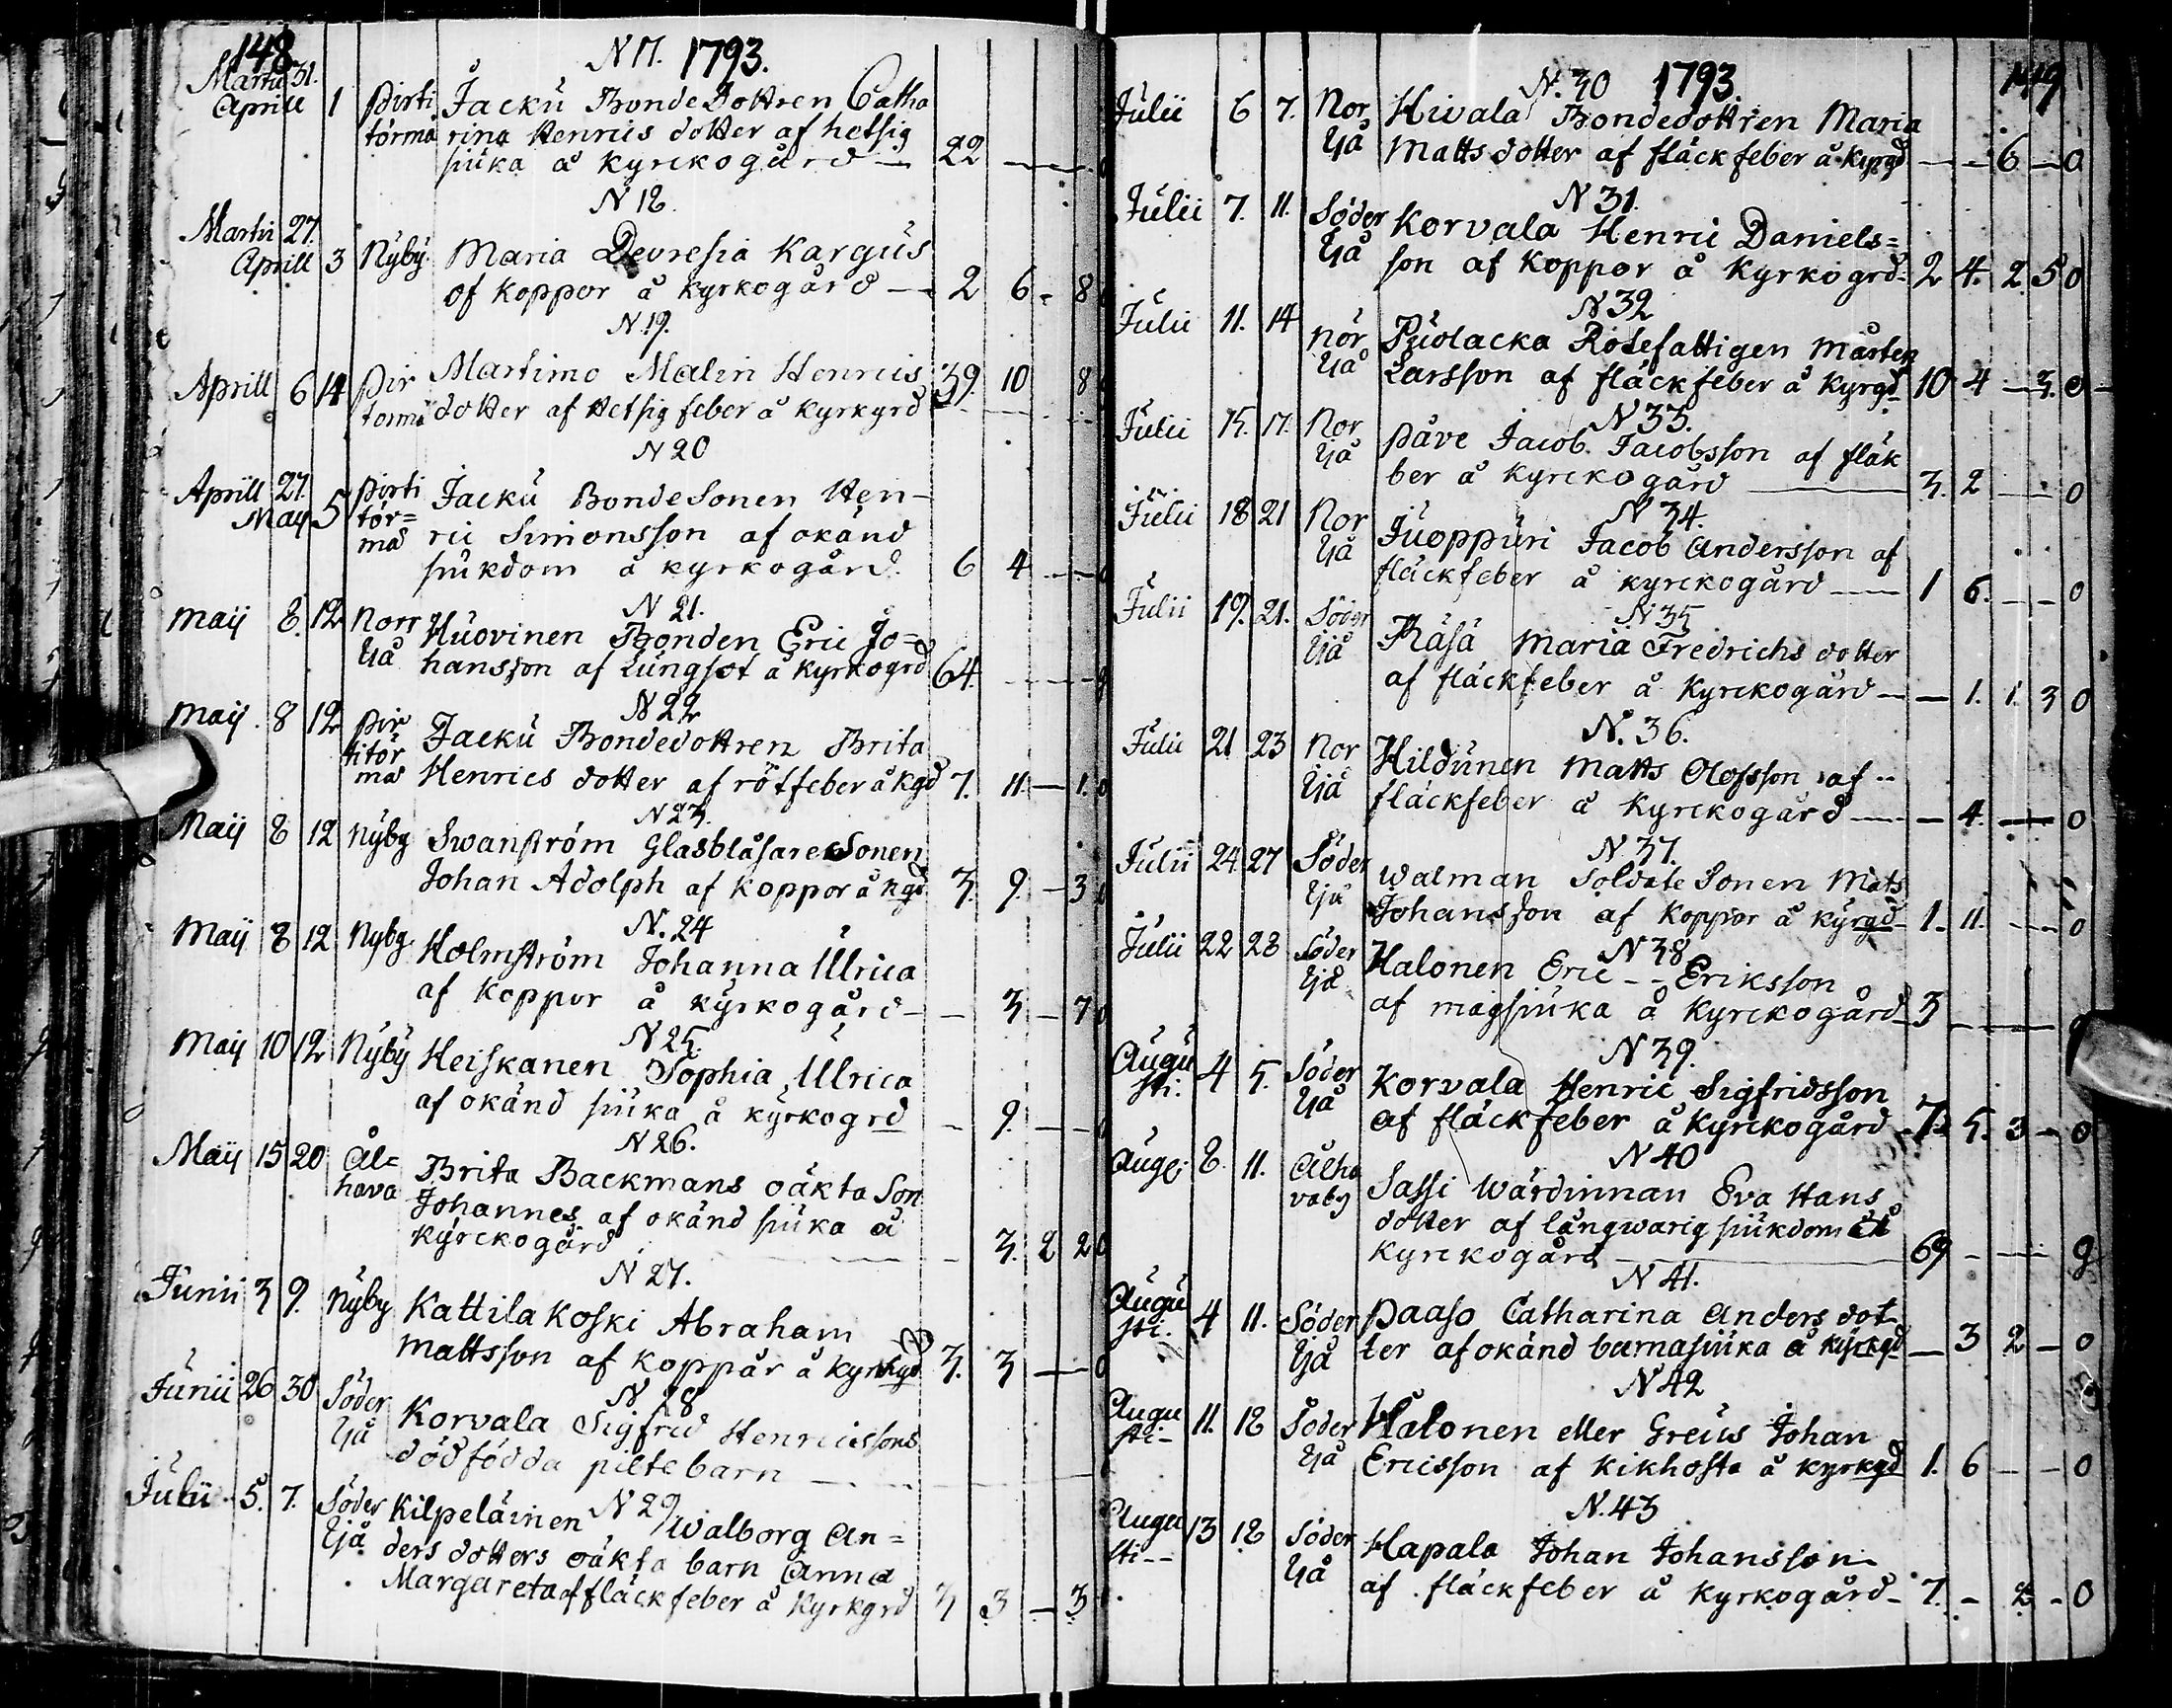 148
N 17. 1793.
Martii 31. Aprill 1 Pirti Jacku BondeDottren Catha
törmä rina Henrics dotter af hetsig
siuka å kyrckogård — 22 — — 0
N 18.
Martii 27.
Aprill 3 Nyby. Maria Devresia Kargus
af koppor å kyrkogård — 2 6 - 8
N 19.
Aprill 6 14 Pir Martimo Malin Henrics 39. 10 8
tormä dotter af Hetsig feber å kyrkgrd
N 20
Aprill 27. Pirti Jacku BondeSonen Hen-
May 5 tör= ric Simonsson af okänd
mä siukdom å kyrkogård. 6 4 — —
N 21.
Maij 8. 12 Norr Huovinen Bonden Eric Jo=
Ijå hansson af Lungsot å kyrkogrd 64. — — g
N 22
Maij. 8 12 Pir Jacku Bondedottren Brita
titör
mä Henrics dotter af rötfeber å kgd 7. 11. — 1. 0
N 23.
Maij 8 12 Nyby Swanström GlasblåsareSonen
Johan Adolph af koppor å kgd 3. 9. — 3 0
N. 24
Maij 8 12 Nyby. Holmström Johanna Ulrica
af koppor å kyrkogård — — 3 — 7 0
N 25.
Maij 10 12 Nyby Heiskanen Sophia Ulrica
af okänd siuka å kyrkogrd — 9. — — 0
N 26.
Maij 15 20 Al= Brita Backmans oäkta Son
hava Johannes af okänd siuka å
kyrckogård — 3. 2 2 0
N 27.
Junii 3 9. Nyby Kattilakoski Abraham
Mattsson af koppår å kyrkgd 3. 3 — 0
N 28
Junii 26 30 Söder Korvala Sigfrid Henricssons
Ijå dödfödda piltebarn —
N 29
Julii. 5. 7. Söder Kilpeläinen Walborg An=
Ijå ders dotters oäkta barn Anna
Margareta af fläckfeber å kyrkgrd 3 3 — 3
149
N. 30 1793.
Julii 6 7. Nor Hivala Bondedottren Maria
Ijå Matts dotter af fläckfeber å kyrgd — — 6 — 0
N 31.
Julii 7. 11. Söder Korvala Henric Daniels=
Ijå son af koppor å kyrkogrd. 2 4. 2. 5 0
N 32
Julii 11. 14 Nor Puolacka Rotefattigen Mårten
Ijå Larsson af fläckfeber å kyrgd 10 4 — 3. 0
N 33.
Julii 15. 17. Nor Påve Jacob Jacobsson af fläk
Ijå ber å kyrckogård — 3. 2 — 0
N 34.
Julii 18 21 Nor Juoppuri Jacob Andersson af
Ijå fläckfeber å kyrckogård — 1 6. — — 0
N 35
Julii 19. 21. Söder Räsä Maria Fredrichs dotter
Ijå af fläckfeber å kyrckogård — — 1. 1. 3 0
N. 36.
Julii 21 23 Nor Hildunen Matts Olofsson af
Ijå fläckfeber å kyrckogård — — 4. — 0
N 37.
Julii 24 27 Söder Walman SoldateSonen Mats
Ijå Johansson af koppor å kyrgd 1. 11. — — 0
N 38
Julii 22 28 Söder Halonen Eric - - Eriksson
Ijå af magsiuka å kyrckogård 3 — —
N 39.
Augu 4 5. Söder Korvala Henric Sigfridsson
sti. Ijå af fläckfeber å kyrckogård 7. 5. 3 — 0
N 40
Aug: 8. 11. Alha Sassi Wärdinnan Eva Hans
vaby dotter af långwarig siukdom å
kyrckogård — 69 — — g
N 41.
Augu 4 11. Söder Paaso Catharina Anders dot
sti. Ijå ter af okänd barnasiuka å kyrkgd — 3 2 — 0
N 42
Augu 11. 18 Söder Halonen eller Greus Johan
sti- Ijå Ericsson af kikhosta å kyrkgd 1. 6 — — 0
N. 43
Augu 13 18 Söder Hapala Johan Johansson
sti-- Ijå af fläckfeber å kyrkogård — 7. — 2 — 0